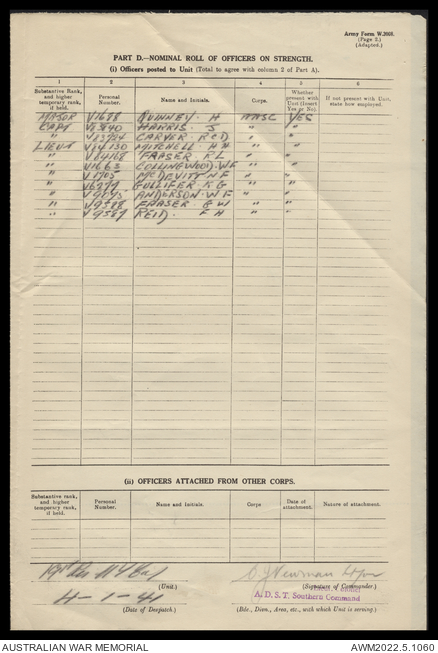 Army Form W.3008.
(Page 2.)
(Adapted.)
PART D.—NOMINAL ROLL OF OFFICERS ON STRENGTH.
(i) Officers posted to Unit (Total to agree with column 2 of Part A).
1 2 3 4 5 6
Substantive Rank, and higher temporary rank, if held. Personal Number. Name and Initials. Corps. Whether present with Unit (Insert Yes or No). If not present with Unit, state how employed.
MAJOR V1678 QUINNEY. H AASC YES
CAPT HARRIS. S " "
" CARVER. R " "
LIEUT MITCHELL. " "
" V64168 FRASER. R L
" V1663 COLLINGWOOD. W F " "
" V1705 McDEVITT N F " "
" GULLIFER. R G " "
" ANDERSON. W F " "
" V9588 FRASER G W " "
" V9587 REID. F H " "
(ii) OFFICERS ATTACHED FROM OTHER CORPS.
Substantive rank, and higher temporary rank, if held. Personal Number. Name and Initials. Corps Date of attachment. Nature of attachment.
Newman
(Unit.) (Signature of Commander.)
A. D. S. T. Southern Command
4-1-41
(Date of Despatch) (Bde., Divn., Area, etc., with which Unit is serving.)
AUSTRALIAN WAR MEMORIAL AWM2022.5.1060